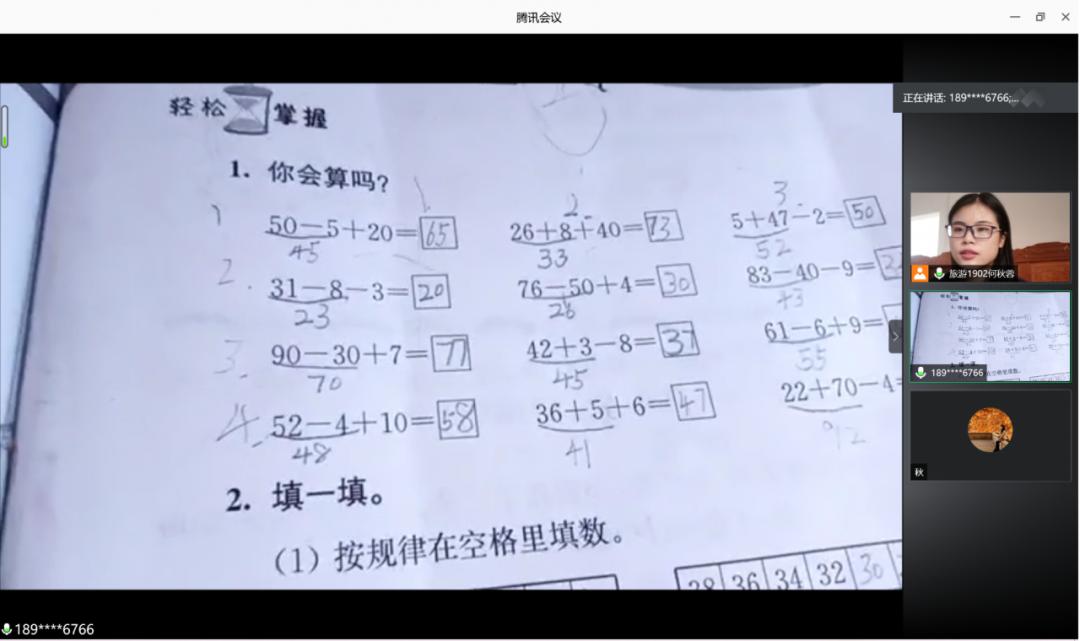 腾讯会议
轻松掌握
1. 你会算吗?
1 2 3
1 50-5+20=65 26+8+40=73 5+47-2=50
45 33 52
2. 31-8-3=20 76-50+4=30 83-40-9=
23 26 43
3. 90-30+7=77 42+3-8=37 61-6+9=
70 45 55
4. 52-4+10=58 36+5+6=47 22+70-4=
48 41 92
2. 填一填。
(1) 按规律在空格里填数。
38 36 34 32 30
正在讲话: 189****6766;...
旅游1902何秋蓉
189****6766
秋
189****6766